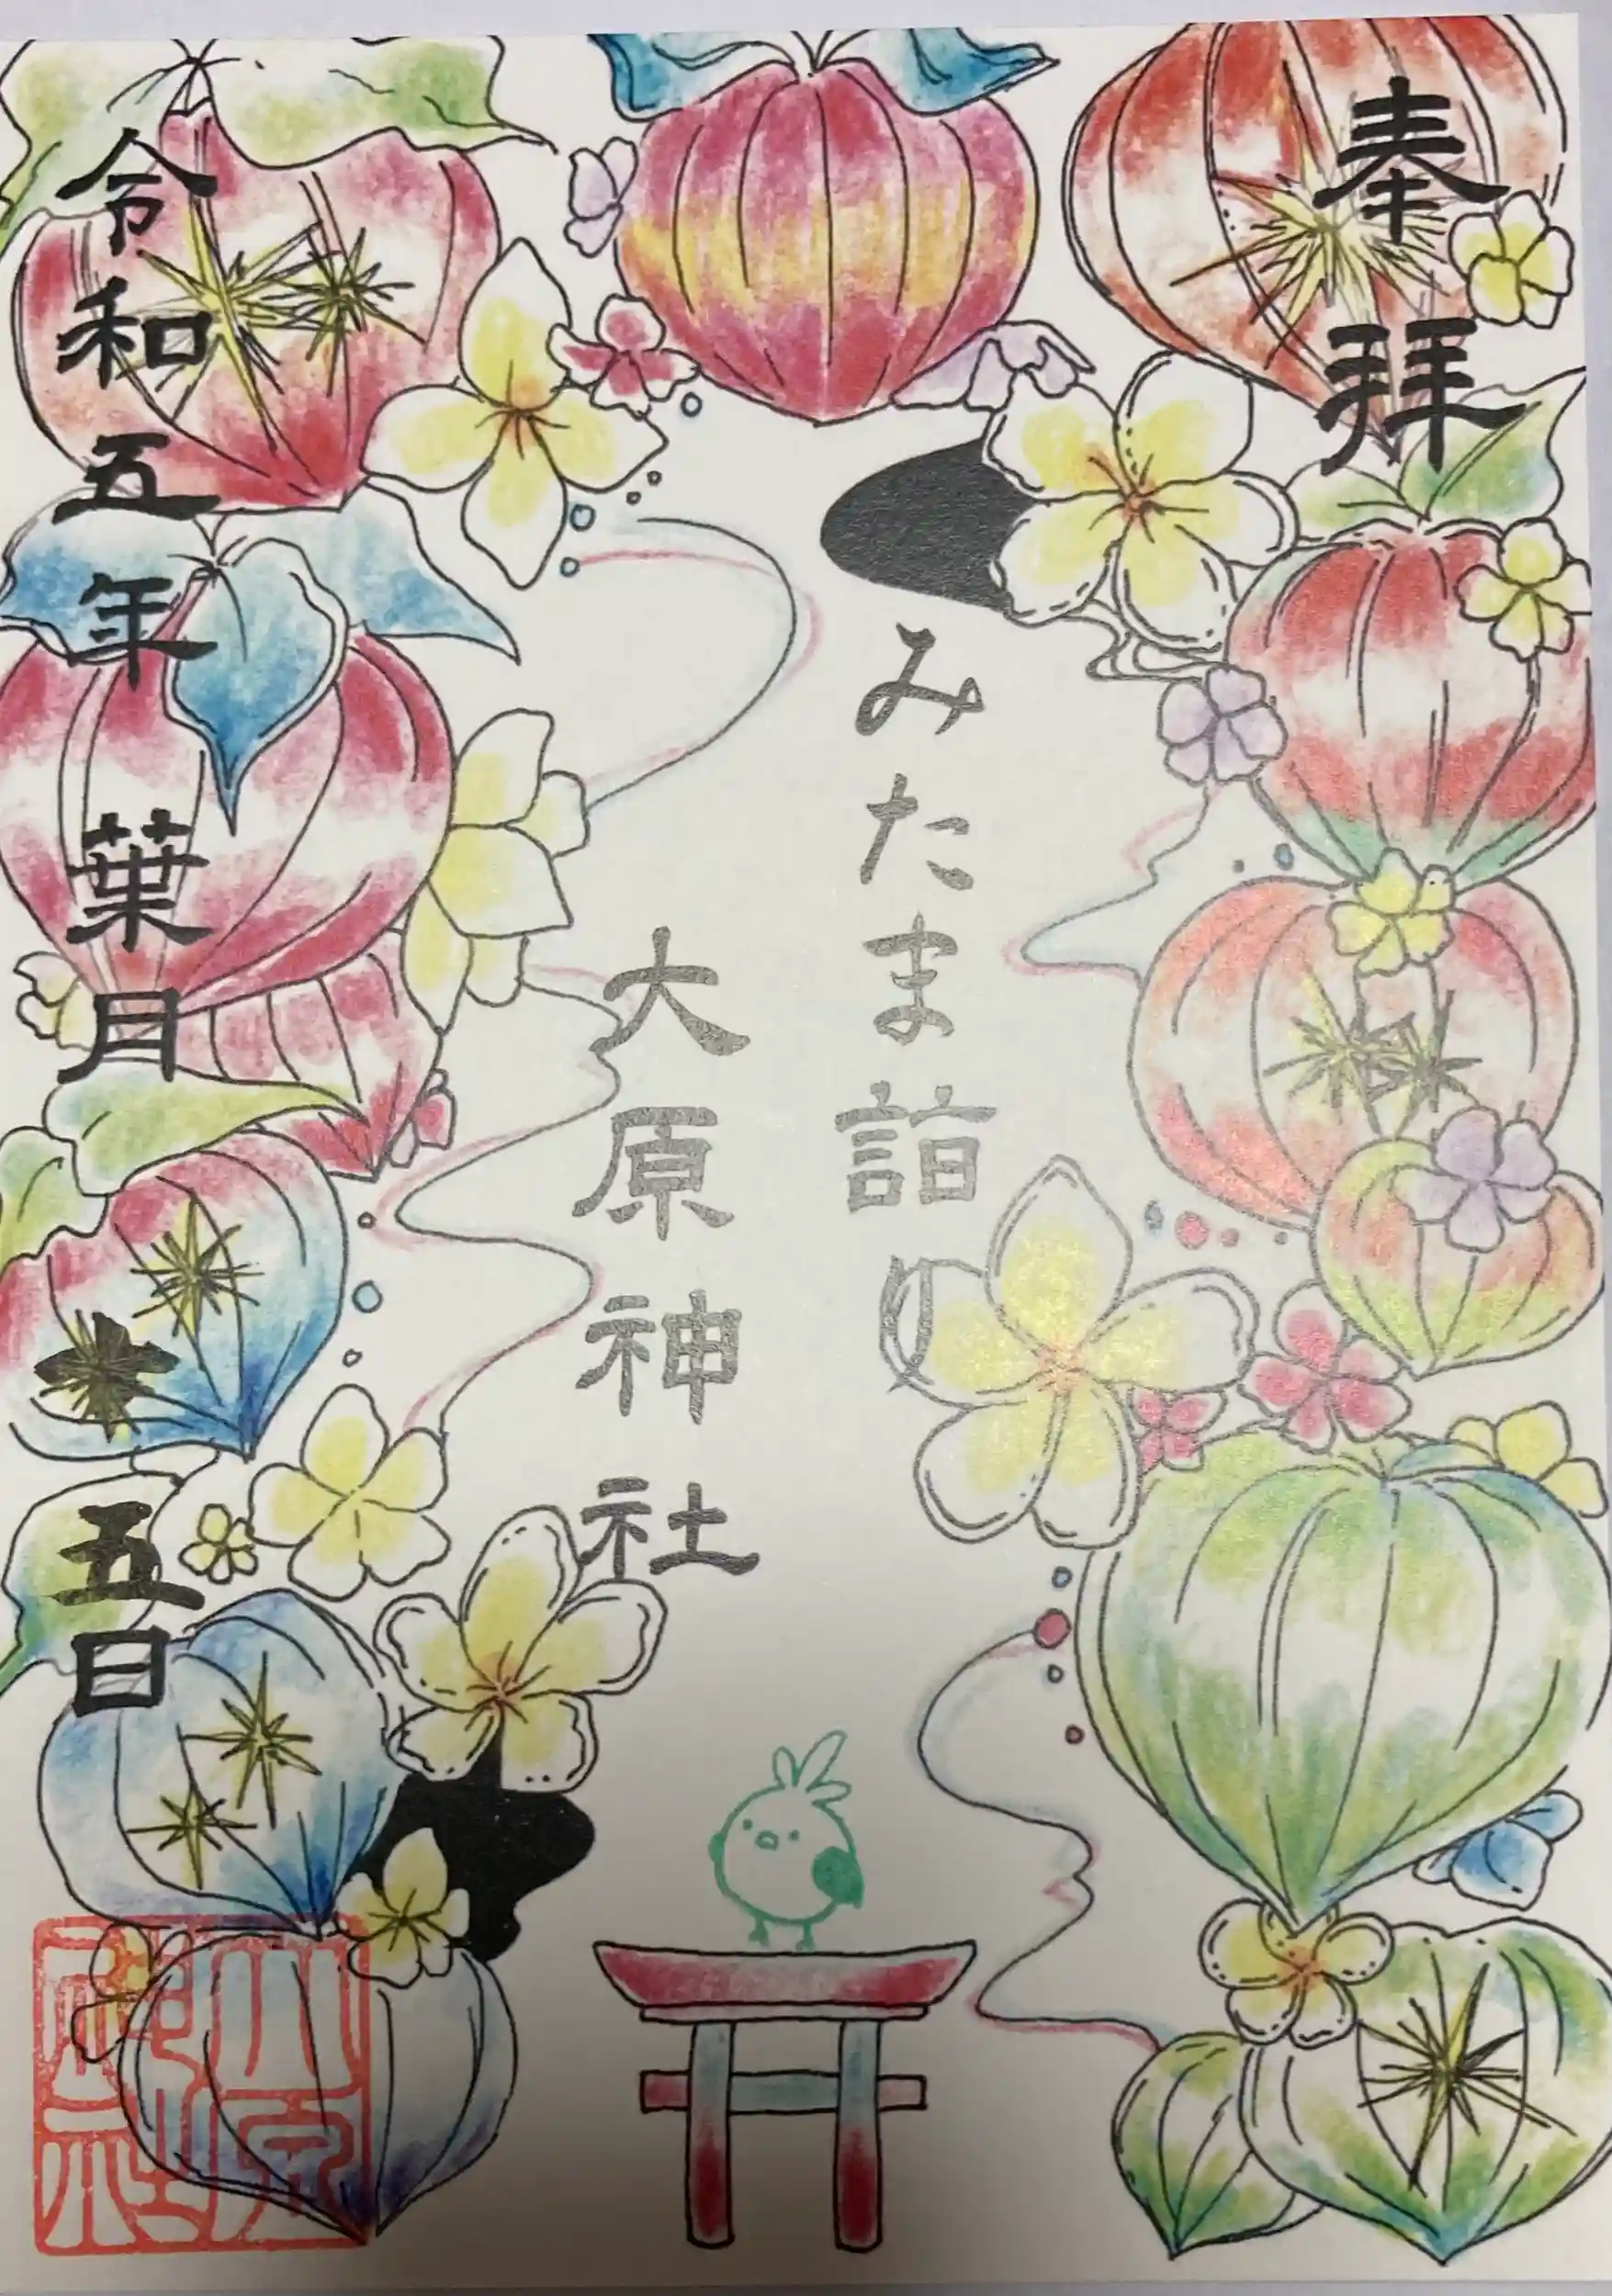 奉拝
みたま詣り
大原神社
令和五年 葉月 十五日
大原
神社